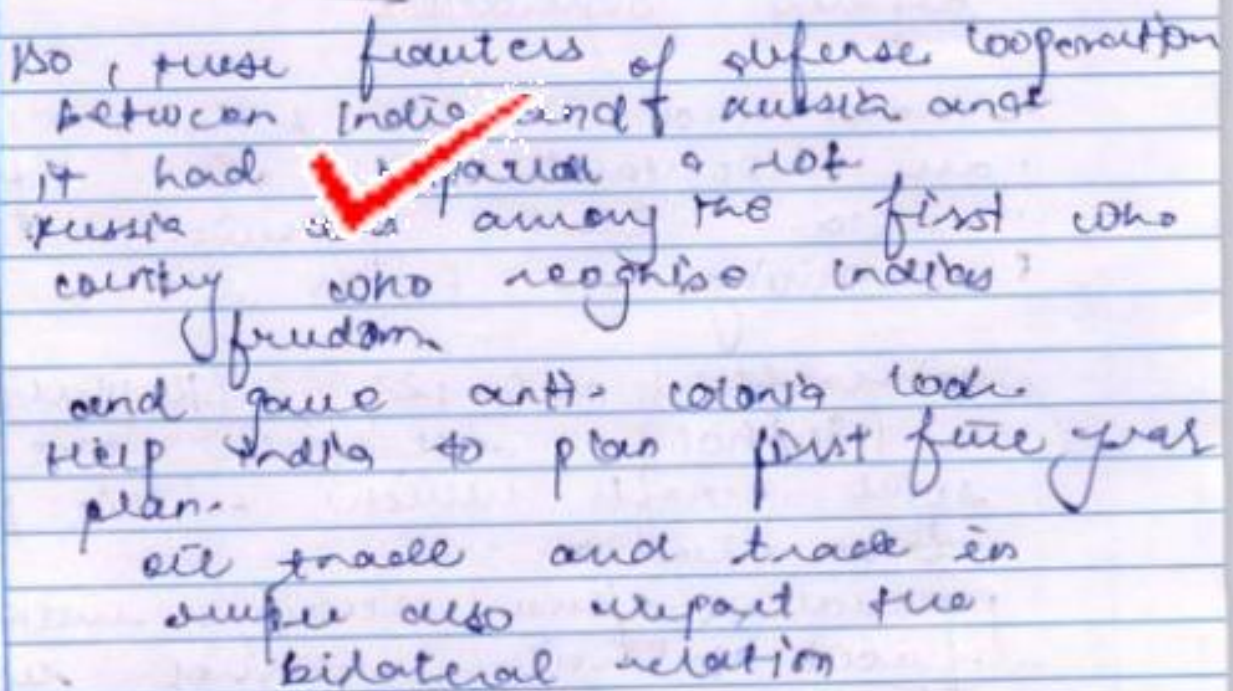 so, these frauters of defense cooperation
between India and russia and
it had a lot
russia was among the first who
country who reoghise indias'
freedom
and gave anti- colonia look.
Help India to plan first five year
plan.
oil trade and trade in
rupee also impact the
bilateral relation